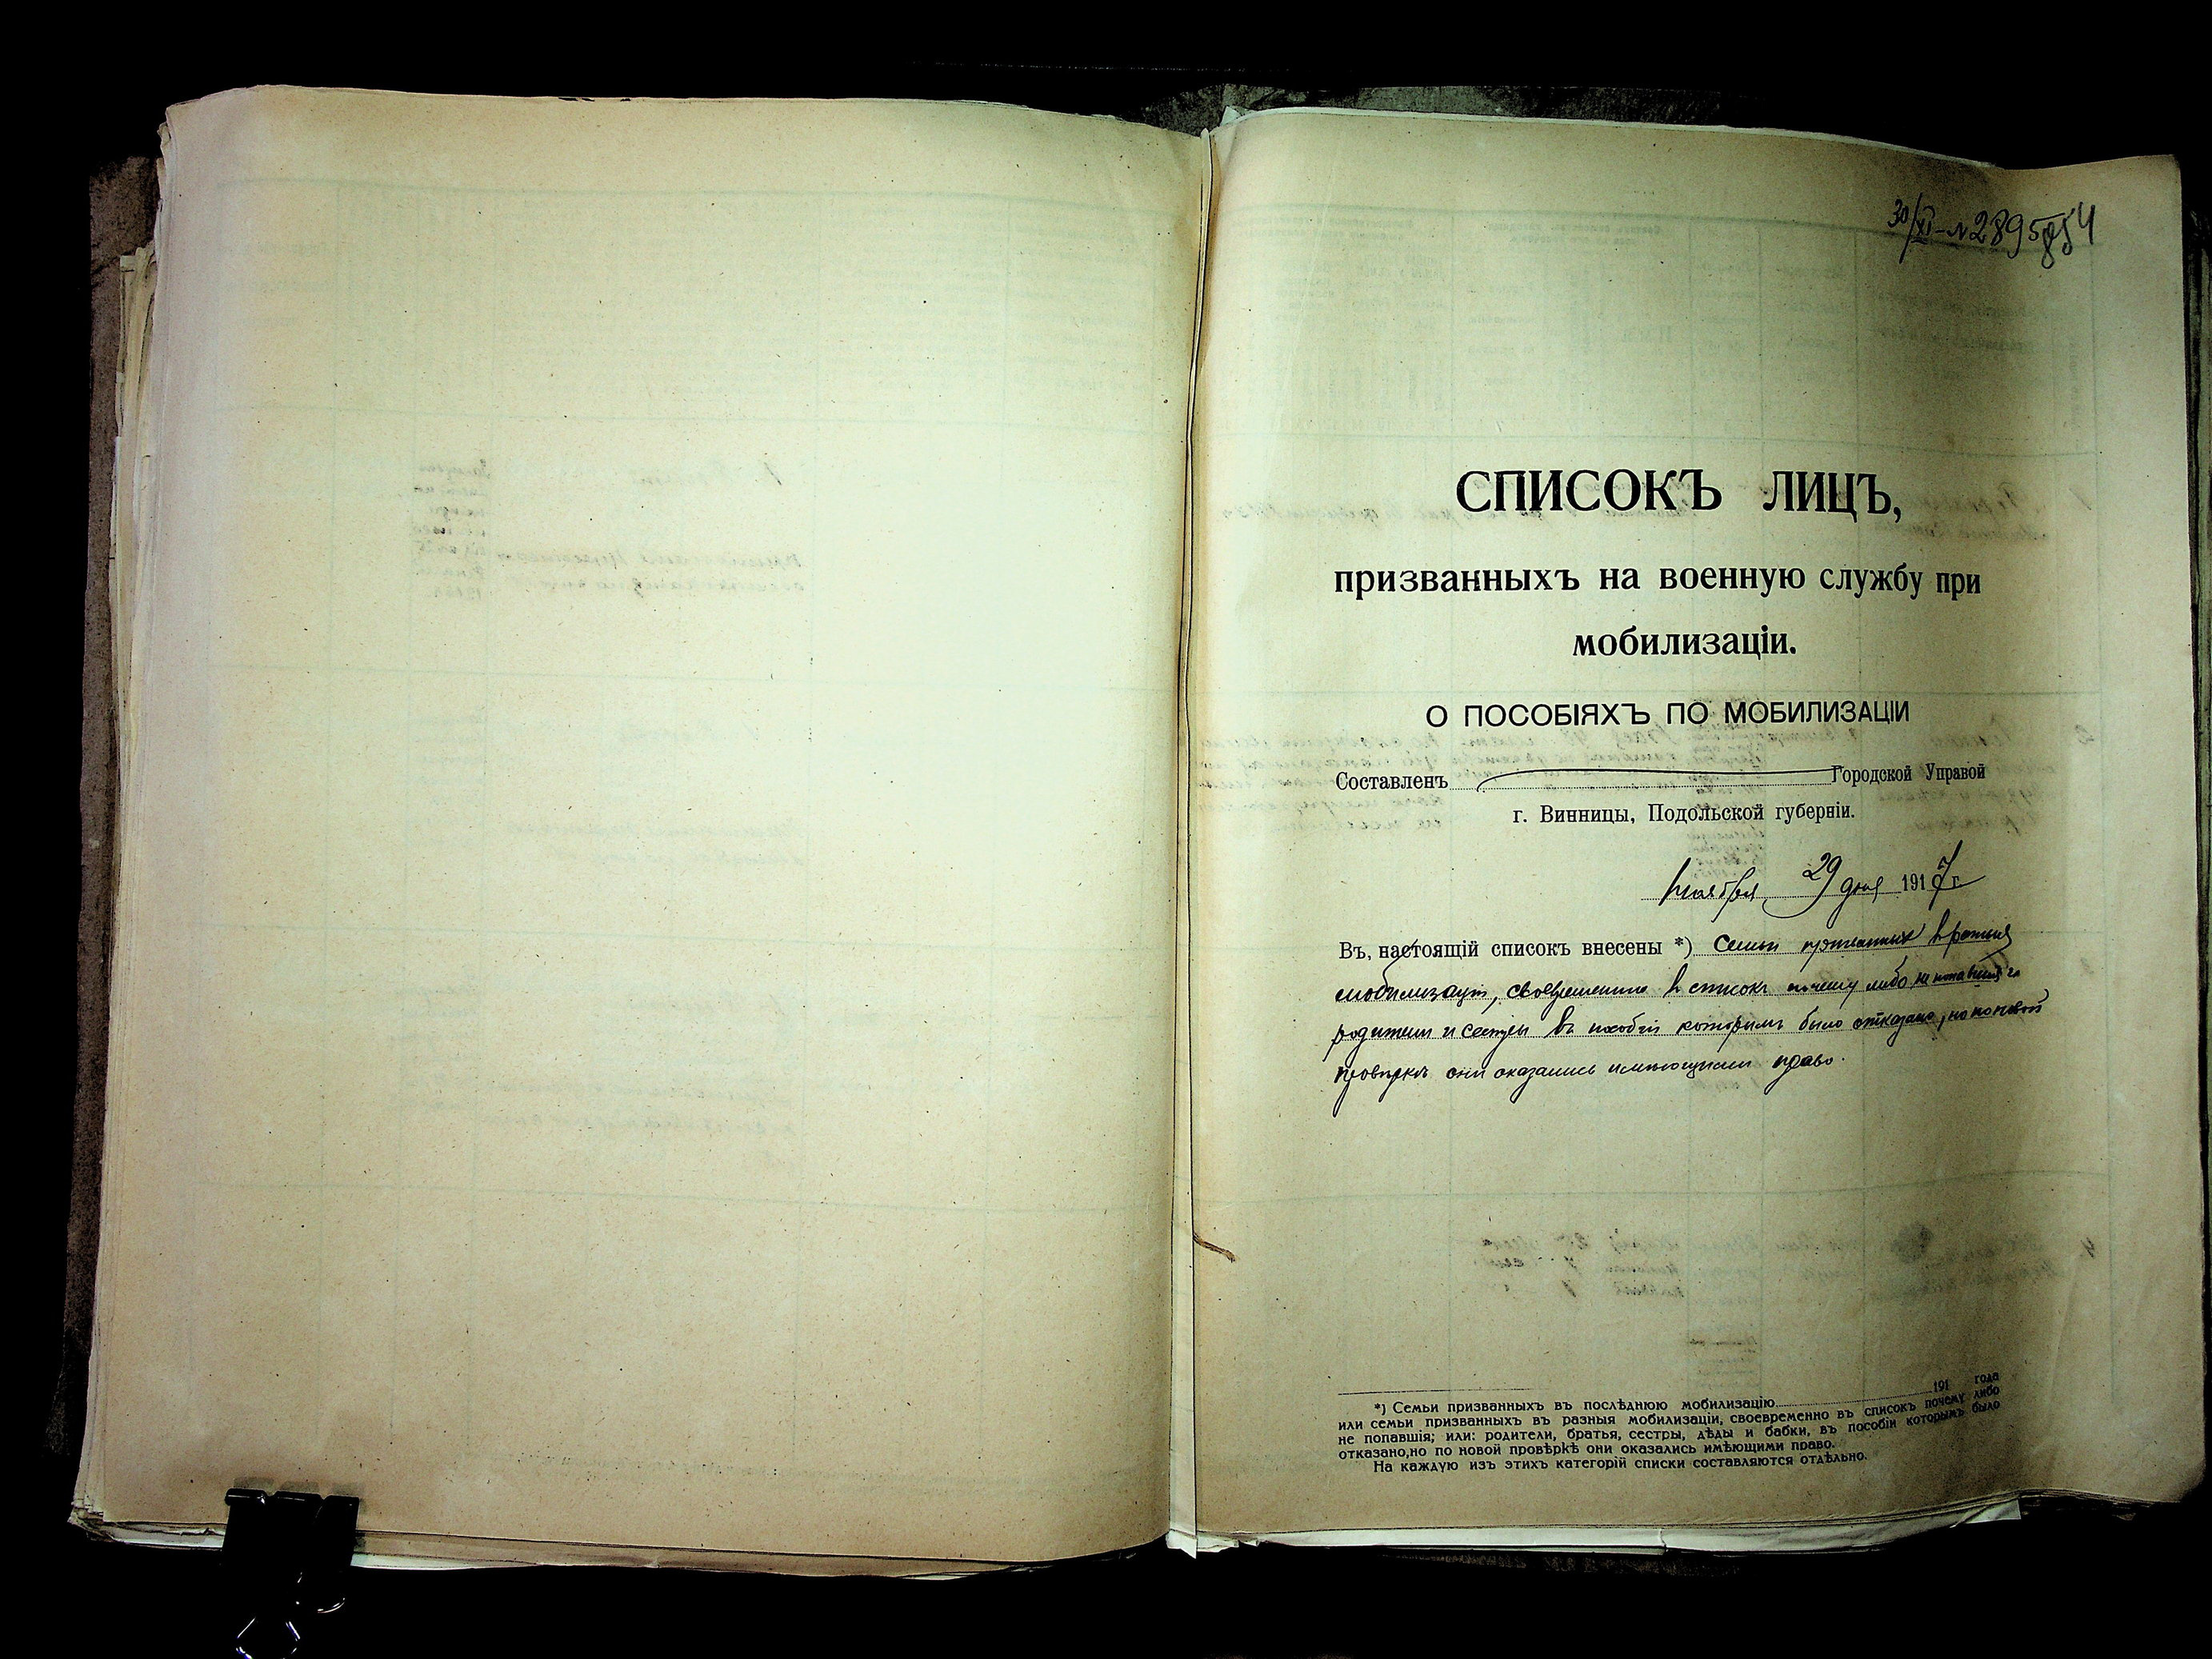 30/XI - № 2895 854
СПИСОКЪ ЛИЦЪ,
призванныхъ на военную службу при
мобилизаціи.
О ПОСОБІЯХЪ ПО МОБИЛИЗАЦІИ
Составленъ Городской Управой
г. Винницы, Подольской губерніи.
Ноября 29 дня 1917 г.
Въ настоящій список внесены *) Семьи призванных в разныя
мобилизаціи, своевременно в список почему либо не попавшія
родители и сестры въ пособіи которым было отказано, но по новой
провѣркѣ они оказались имѣющими право.
191 года
*) Семьи призванныхъ въ послѣднюю мобилизацію
или семьи призванныхъ въ разныя мобилизаціи, своевременно въ списокъ почему либо
не попавшія; или: родители, братья, сестры, дѣды и бабки, въ пособіи которымъ было
отказано,но по новой провѣркѣ они оказались имѣющими право.
На каждую изъ этихъ категорій списки составляются отдѣльно.